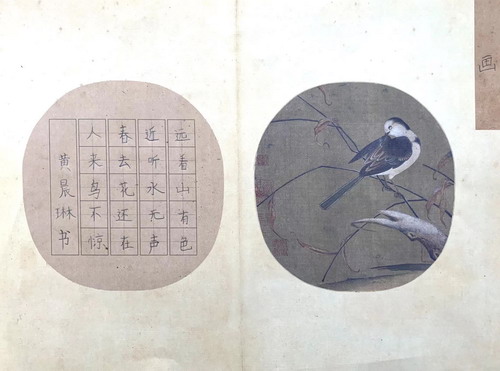 画
远看山有色
近听水无声
春去花还在
人来鸟不惊
黄晨琳书